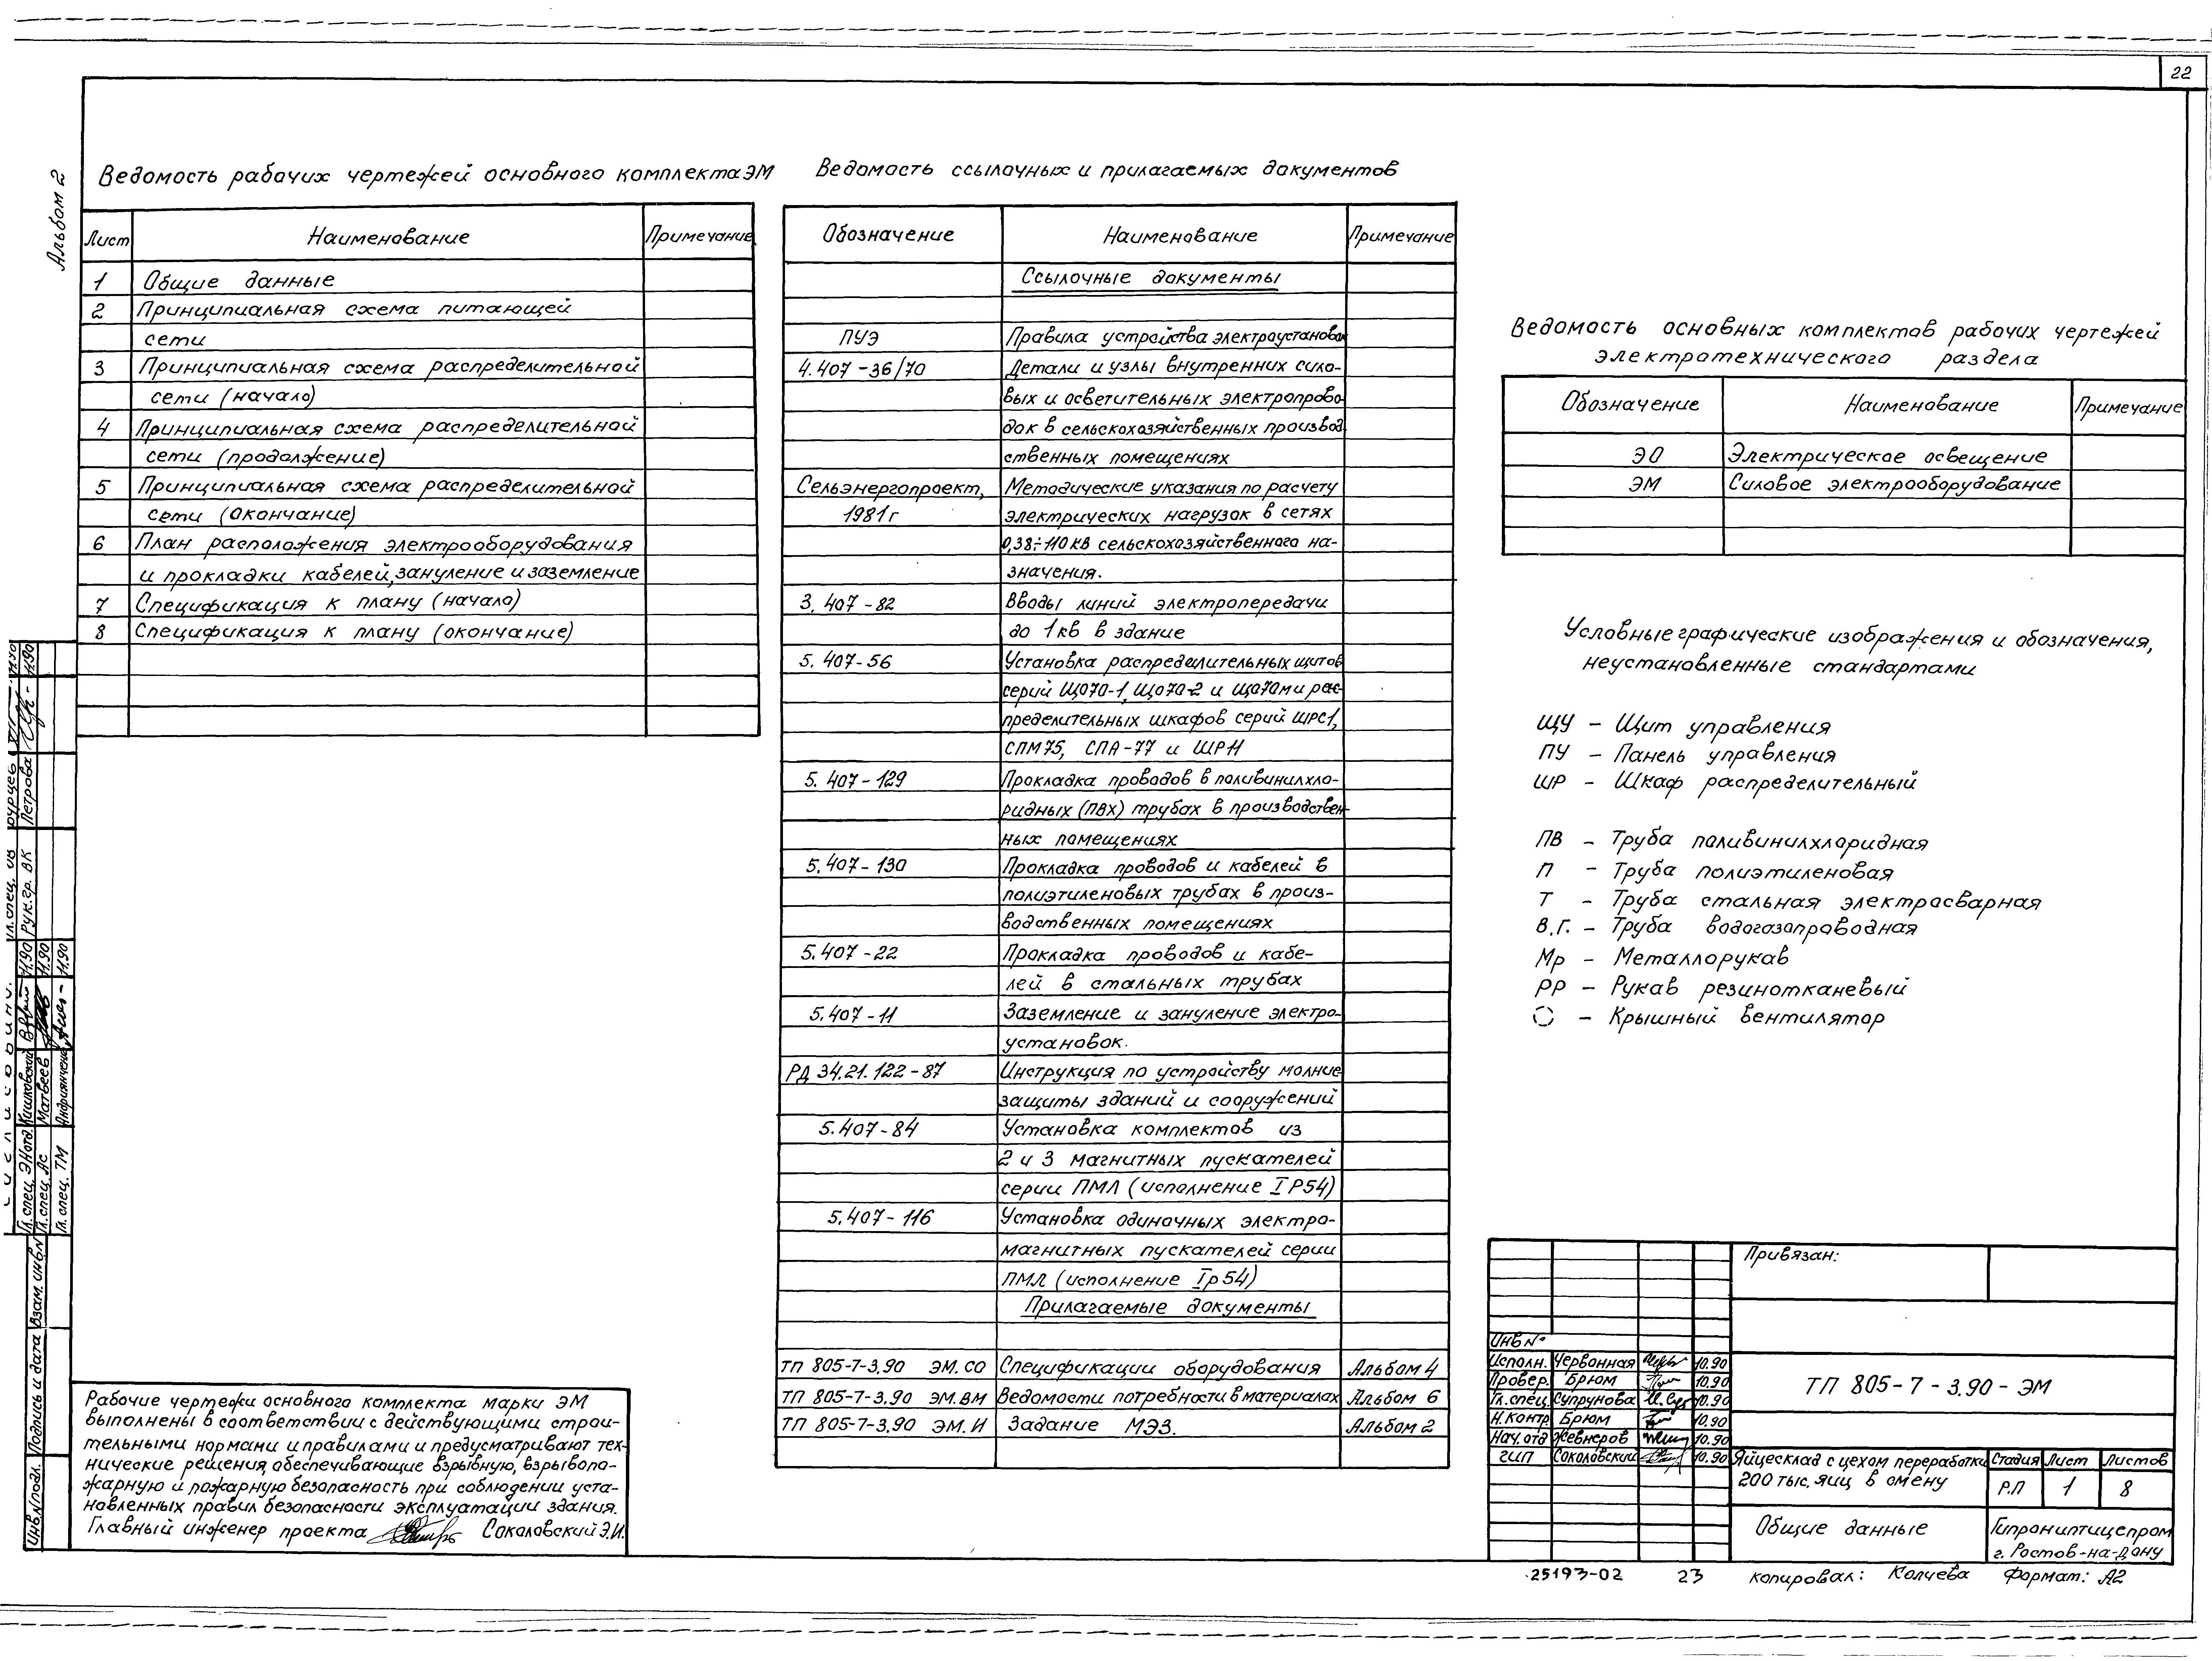 22
Альбом 2
Ведомость рабочих чертежей основного комплекта ЭМ
Лист Наименование Примечание
1 Общие данные
2 Принципиальная схема питающей
сети
3 Принципиальная схема распределительной
сети (начало)
4 Принципиальная схема распределительной
сети (продолжение)
5 Принципиальная схема распределительной
сети (окончание)
6 План расположения электрооборудования
и прокладки кабелей, зануление и заземление
7 Спецификация к плану (начало)
8 Спецификация к плану (окончание)
Ведомость ссылочных и прилагаемых документов
Обозначение Наименование Примечание
Ссылочные документы
ПУЭ Правила устройства электроустановок
4.407-36/70 Детали и узлы внутренних сило-
вых и осветительных электропрово
док в сельскохозяйственных производ
ственных помещениях
Сельэнергопроект, Методические указания по расчету
1981г электрических нагрузок в сетях
0,38÷110кв сельскохозяйственного на-
значения.
3.407-82 Вводы линий электропередачи
до 1кв в здание
5.407-56 Установка распределительных щитов
серий ЩО70-1, ЩО70-2 и ЩО70м и рас-
пределительных шкафов серий ШРС1,
СПМ75, СПА-77 и ШР11
5.407-129 Прокладка проводов в поливинилхло-
ридных (ПВХ) трубах в производствен-
ных помещениях
5.407-130 Прокладка проводов и кабелей в
полиэтиленовых трубах в произ-
водственных помещениях
5.407-22 Прокладка проводов и кабе-
лей в стальных трубах
5.407-11 Заземление и зануление электро-
установок.
РД 34.21.122-87 Инструкция по устройству молние
защиты зданий и сооружений
5.407-84 Установка комплектов из
2 и 3 магнитных пускателей
серии ПМЛ (исполнение IP54)
5.407-116 Установка одиночных электро-
магнитных пускателей серии
ПМЛ (исполнение Iр54)
Прилагаемые документы
ТП 805-7-3.90 ЭМ.СО Спецификации оборудования Альбом 4
ТП 805-7-3.90 ЭМ.ВМ Ведомости потребности в материалах Альбом 6
ТП 805-7-3.90 ЭМ.И Задание МЭЗ. Альбом 2
Ведомость основных комплектов рабочих чертежей
электротехнического раздела
Обозначение Наименование Примечание
ЭО Электрическое освещение
ЭМ Силовое электрооборудование
Условные графические изображения и обозначения,
неустановленные стандартами
ЩУ - Щит управления
ПУ - Панель управления
ШР - Шкаф распределительный
ПВ - Труба поливинилхлоридная
П - Труба полиэтиленовая
Т - Труба стальная электросварная
В.Г. - Труба водогазопроводная
Мр - Металлорукав
РР - Рукав резинотканевый
- Крышный вентилятор
Рабочие чертежи основного комплекта марки ЭМ
выполнены в соответствии с действующими строи-
тельными нормами и правилами и предусматривают тех-
нические решения, обеспечивающие взрывную, взрывопо-
жарную и пожарную безопасность при соблюдении уста-
новленных правил безопасности эксплуатации здания.
Главный инженер проекта Соколовский Э.И.
Гл. спец. ЭНотд. Кишковский 11.90
Гл. спец. Ас Матвеев 11.90
Гл. спец. ТМ Андриянченко 11.90
Гл. спец. ОВ Бурцев 11.90
Рук. гр. ВК Петрова 11.90
Инв.N подл. Подпись и дата Взам. инв.N
Привязан:
Инв №
Исполн. Червонная 10.90
Провер. Брюм 10.90
Гл. спец. Супрунова 10.90
Н. контр. Брюм 10.90
Нач. отд Жевнеров 10.90
ГИП Соколовский 10.90
ТП 805-7-3.90-ЭМ
Яйцесклад с цехом переработки
200 тыс. яиц в смену
Стадия Лист Листов
Р.П 1 8
Общие данные
Гипрониптицепром
г. Ростов-на-Дону
25193-02 23 копировал: Колчева Формат: А2